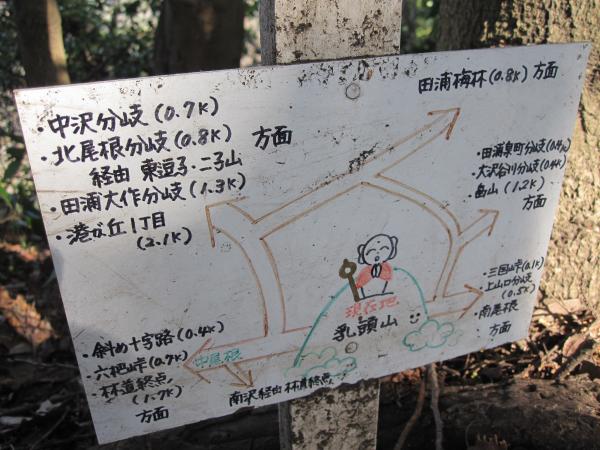 ・中沢分岐(0.7K)
・北尾根分岐(0.8K) 方面
経由 東逗子・二子山
・田浦大作分岐(1.3K)
・港が丘1丁目
(2.1K)
田浦梅林(0.8K) 方面
・田浦泉町分岐
大沢谷川分岐(0.4K)
・畠山(1.2K)
方面
・三国峠(0.1K)
・上山口分岐
(0.5K)
・南尾根
方面
現在地
乳頭山
中尾根
・斜め十字路(0.4K)
・六把峠(0.7K)
・林道終点
(1.7K)
方面
南沢経由 林道終点